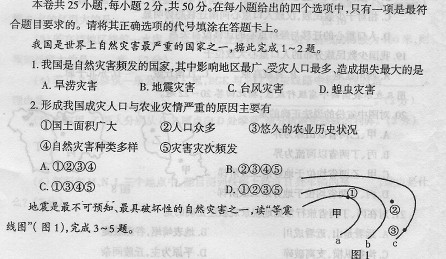 本卷共25小题,每小题2分,共50分。在每小题给出的四个选项中,只有一项是最符
合题目要求的。请将其正确选项的代号填涂在答题卡上。
我国是世界上自然灾害最严重的国家之一,据此完成1~2题。
1.我国是自然灾害频发的国家,其中影响地区最广、受灾人口最多、造成损失最大的是
A.旱涝灾害 B.地震灾害 C.台风灾害 D.蝗虫灾害
2.形成我国成灾人口与农业灾情严重的原因主要有
①国土面积广大 ②人口众多 ③悠久的农业历史状况
④自然灾害种类多样 ⑤灾害灾次频发
A.①②③④ B.②③④⑤
C.①③④⑤ D.①②③⑤
地震是最不可预知、最具破坏性的自然灾害之一,读“等震
线图”(图1),完成3~5题。
甲 ① ② ③
a b c
图1